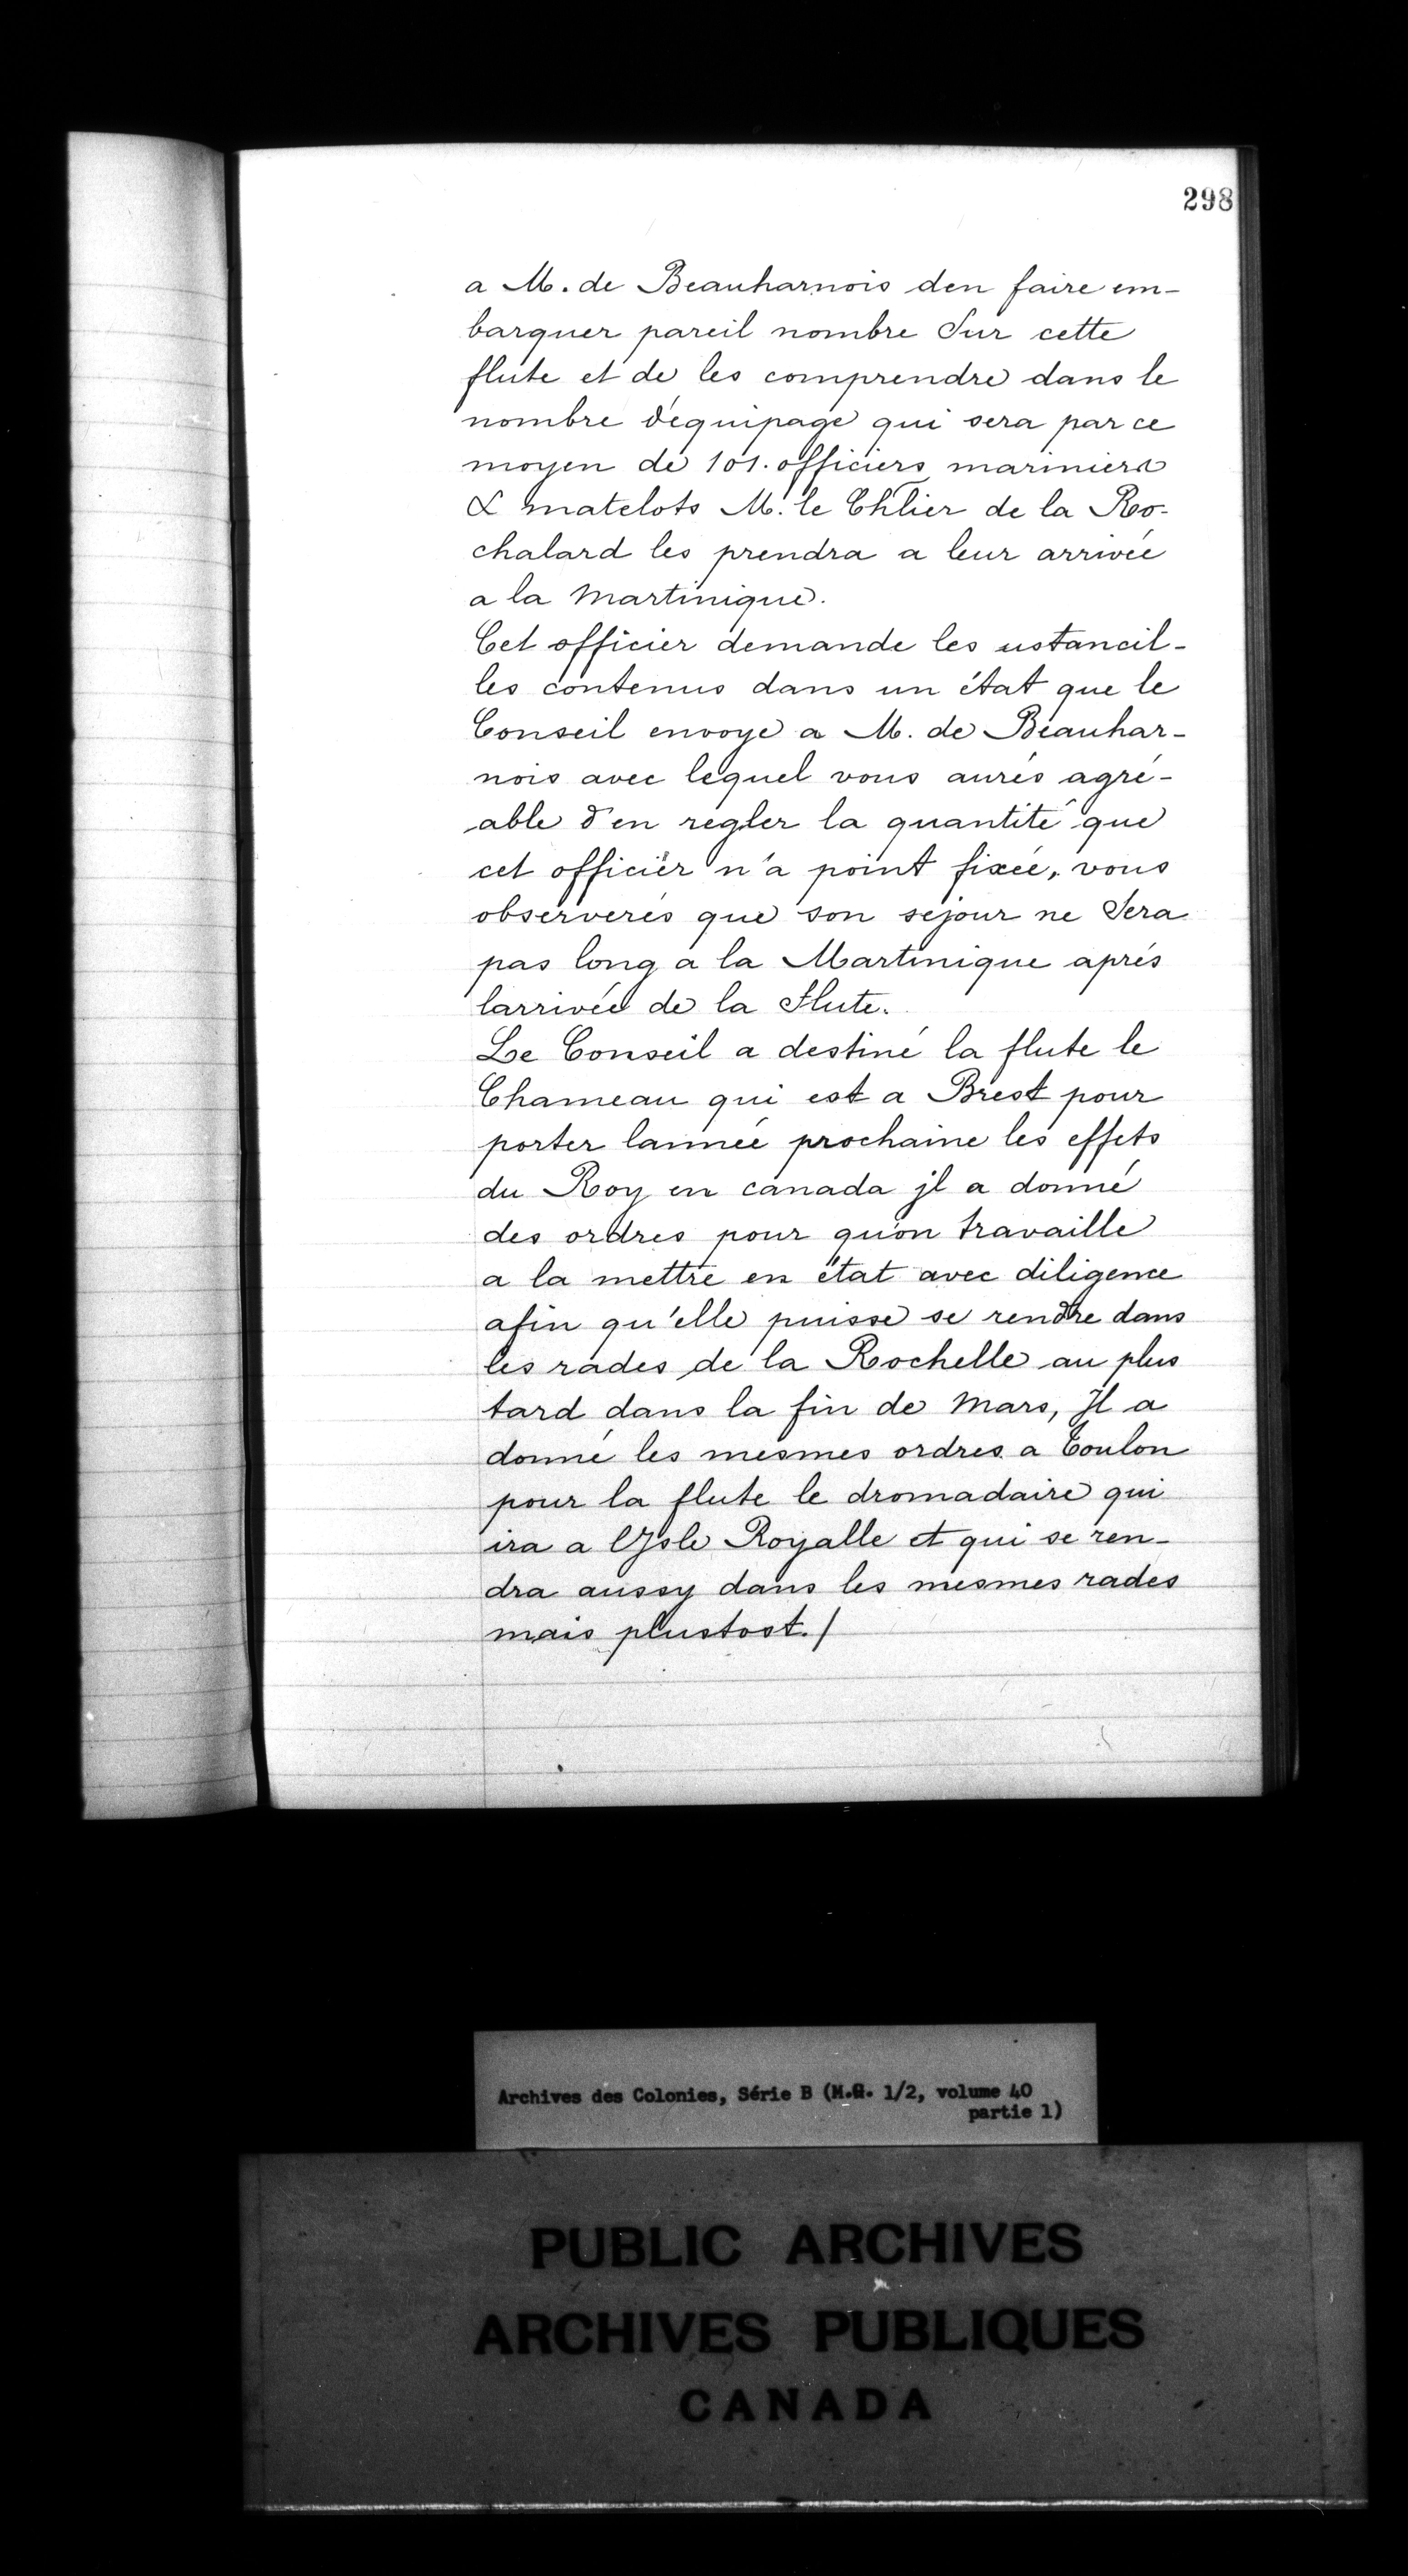 298
a M. de Beauharnois den faire em-
barquer pareil nombre Sur cette
flute et de les comprendre dans le
nombre d'equipage qui sera par ce
moyen de 101. officiers mariniers
& matelots M. le Chlier de la Ro-
chalard les prendra a leur arrivée
a la Martinique.
Cet officier demande les ustancil-
les contenus dans un état que le
Conseil envoye a M. de Beauhar-
nois avec lequel vous aurés agré-
able d'en regler la quantité que
cet officier n'a point fixée, vous
observerés que son sejour ne Sera
pas long a la Martinique aprés
larrivée de la flute.
Le Conseil a destiné la flute le
Chameau qui est a Brest pour
porter lannée prochaine les effets
du Roy en canada jl a donné
des ordres pour qu'on travaille
a la mettre en état avec diligence
afin qu'elle puisse se rendre dans
les rades de la Rochelle au plus
tard dans la fin de Mars, Jl a
donné les mesmes ordres a Toulon
pour la flute le dromadaire qui
ira a lJsle Royalle et qui se ren-
dra aussy dans les mesmes rades
mais plustost./
Archives des Colonies, Série B (M.G. 1/2, volume 40
partie 1)
PUBLIC ARCHIVES
ARCHIVES PUBLIQUES
CANADA